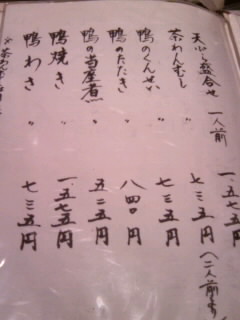 天ぷら盛合せ 一人前 一、五七五円
茶わんむし 〃 七三五円
鴨のくんせい 〃 七三五円
鴨のたたき 〃 八四〇円
鴨の当座煮 〃 五二五円
鴨焼き 〃 一、五七五円
鴨わさ 〃 七三五円
※茶わんむし